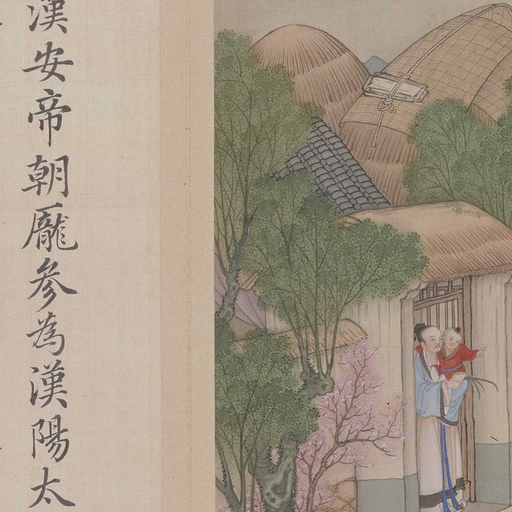 漢安帝朝龐參為漢陽太